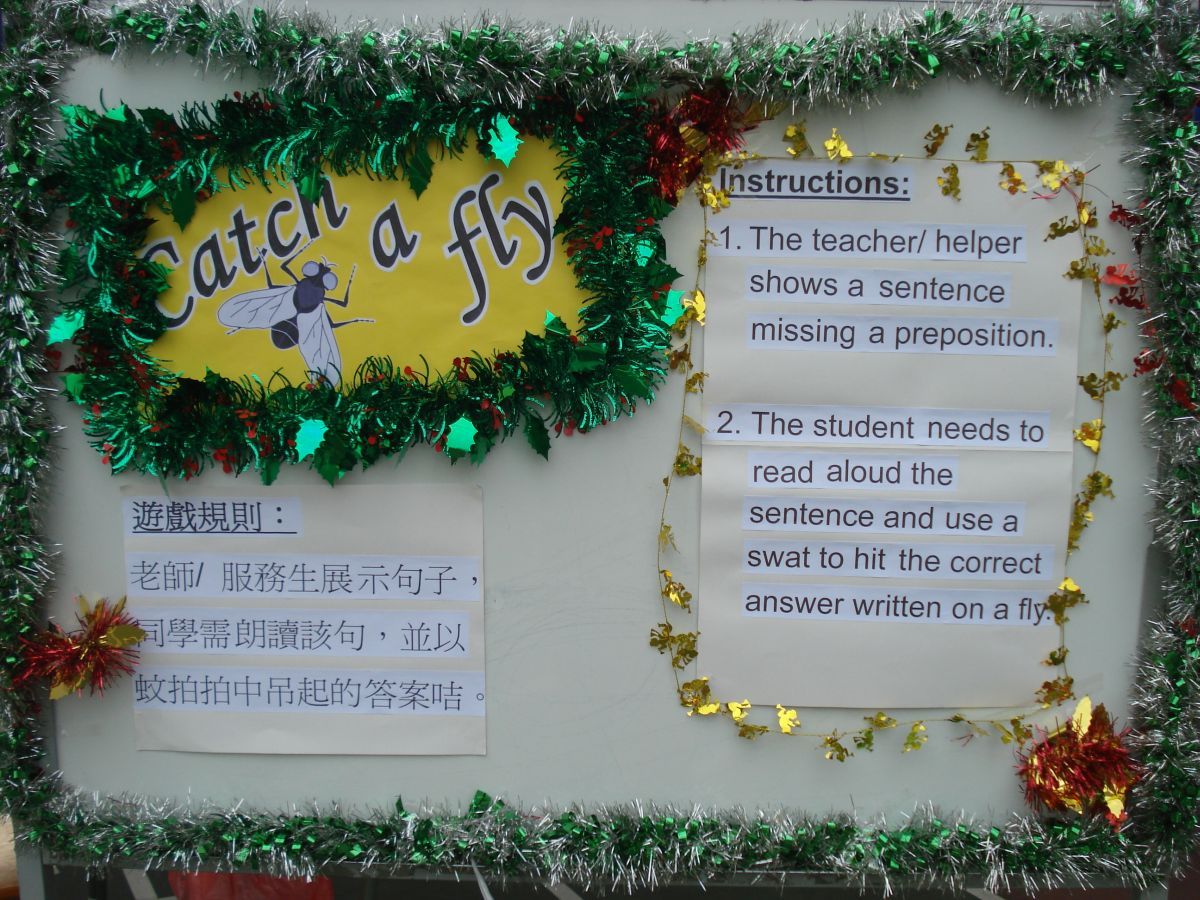 Catch a fly
Instructions:
1. The teacher/ helper
shows a sentence
missing a preposition.
2. The student needs to
read aloud the
sentence and use a
swat to hit the correct
answer written on a fly.
遊戲規則：
老師/ 服務生展示句子，
同學需朗讀該句，並以
蚊拍拍中吊起的答案咭。